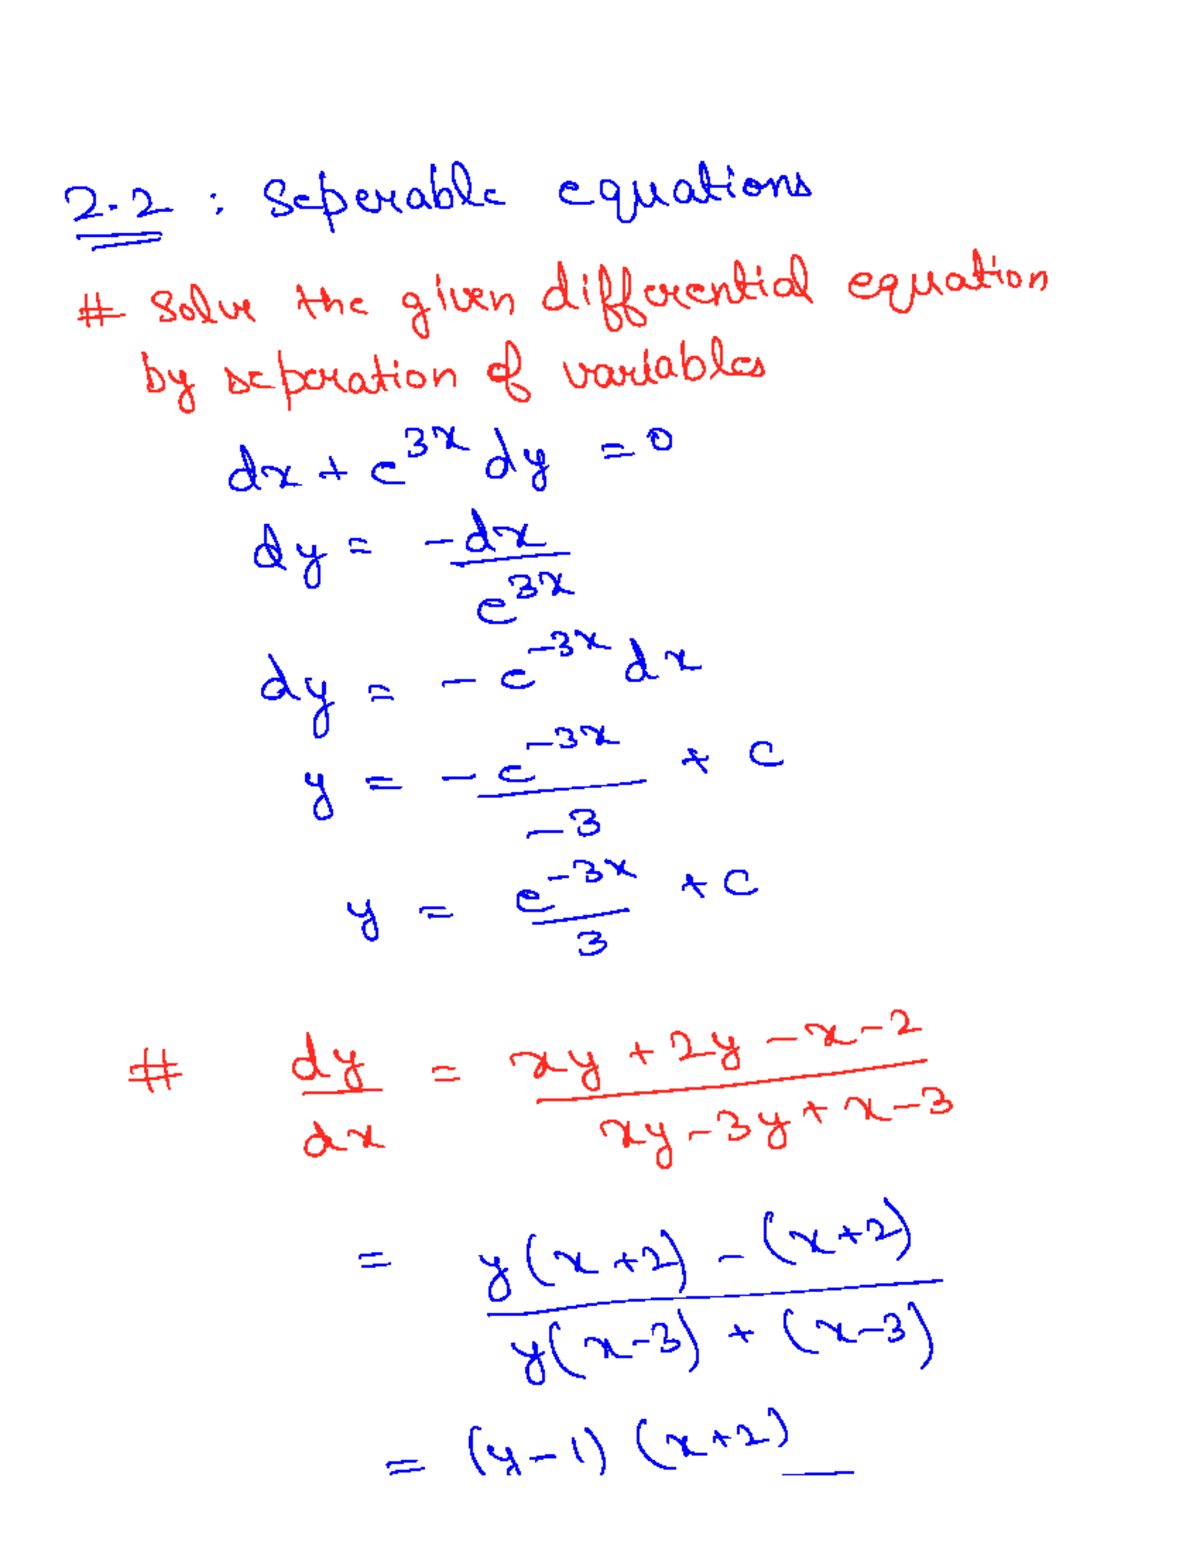 2.2 : Seperable equations
# Solve the given differential equation
by seperation of variables
dx + e^{3x} dy = 0
dy = -dx / e^{3x}
dy = - e^{-3x} dx
y = - e^{-3x} / -3 + c
y = e^{-3x} / 3 + c
# dy/dx = (xy + 2y - x - 2) / (xy - 3y + x - 3)
= (y(x+2) - (x+2)) / (y(x-3) + (x-3))
= (y-1) (x+2)